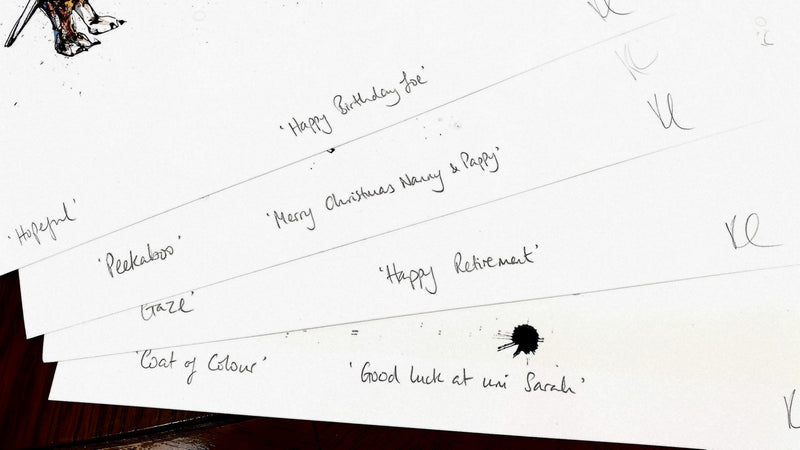 'Hopeful'
'Happy Birthday Joe'
'Peekaboo'
'Merry Christmas Nanny & Pappy'
'Gaze'
'Happy Retirement'
'Coat of Colour'
'Good luck at uni Sarah'